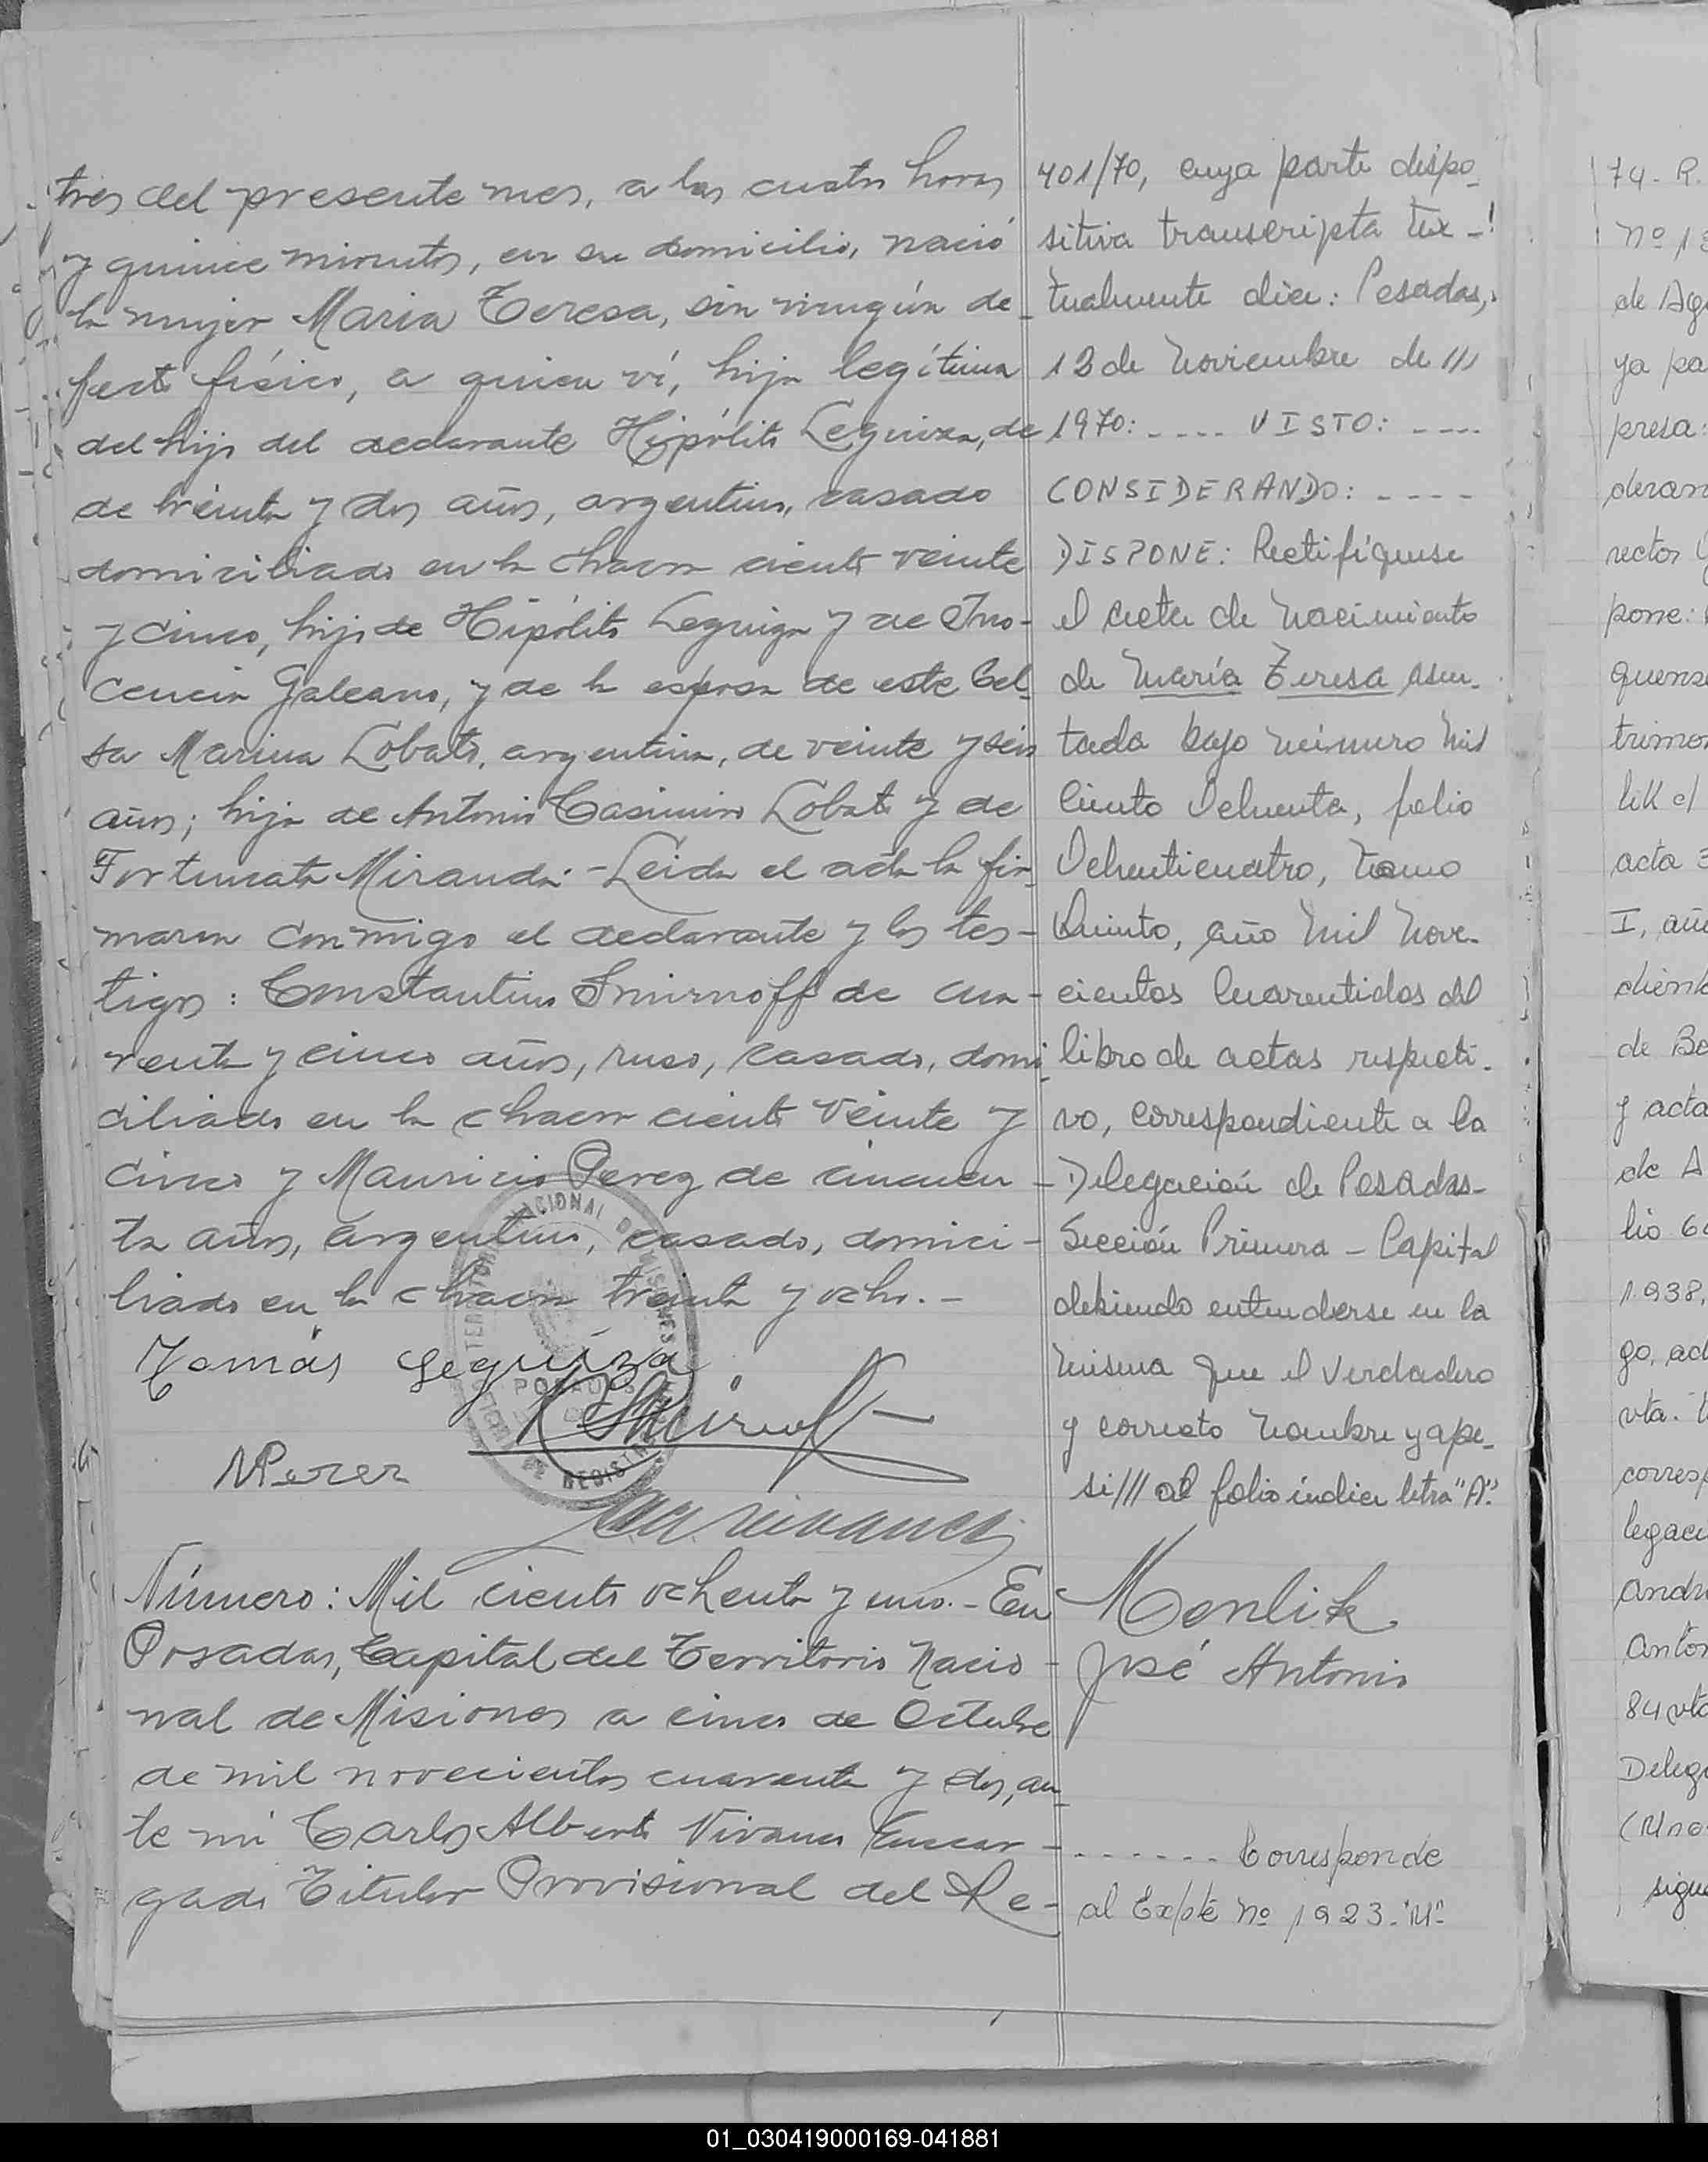 tres del presente mes, a las cuatro horas
y quince minutos, en su domicilio, nació
la mujer Maria Teresa, sin ningún de_
fecto físico, a quien ví, hija legítima
del hijo del declarante Hipólito Leguiza, de
de treinta y dos años, argentino, casado
domiciliado en la chacra ciento veinte
y cinco, hijo de Hipólito Leguiza y de Ino-
cencia Galeano, y de la esposa de este Cel_
sa Marina Lobato, argentina, de veinte y seis
años; hija de Antonio Casimiro Lobato y de
Fortunata Miranda.- Leida el acta la fir_
maron conmigo el declarante y los tes-
tigos: Constantino Smirnoff de cua-
renta y cinco años, ruso, casado, domi_
ciliado en la chacra ciento veinte y
cinco y Mauricio Perez de cincuen-
ta años, argentino, casado, domici-
liado en la chacra treinta y ocho.-
Tomás Leguiza
MPerez
Número: Mil ciento ochenta y uno.- En
Posadas, Capital del Territorio Nacio-
nal de Misiones a cinco de Octubre
de mil novecientos cuarenta y dos, an_
te mi Carlos Alberto Vivanco Encar-
gado Titular Provisional del Re-
401/70, cuya parte dispo_
sitiva transcripta tex-
tualmente dice: Posadas,
12 de Noviembre de ///
1970: - - - - VISTO: - - - -
CONSIDERANDO: - - - -
DISPONE: Rectifíquese
el acta de nacimiento
de María Teresa asen_
tada bajo número mil
Ciento Ochenta, folio
Ochenticuatro, tomo
Quinto, año mil nove-
cientos Cuarentidos del
libro de actas respecti-
vo, correspondiente a la
Delegación de Posadas-
Sección Primera - Capital
debiendo entenderse en la
misma que el verdadero
y correcto nombre y ape_
si/// al folio índice letra "A".
Menlik
José Antonio
- - - - - - Corresponde
al Expte nº 1923-"M"-
74- R.
nº 13
de Ag
ya pa
presa:
deran
rectos
pone:
quense
trimon
lik c/
acta 3
I, añ
dient
de Be
y acta
de A
lio 6
1938,
go, ac
vta.
corresp
legaci
andr
anton
84 vta
Deleg
(Uno
sigue
01_030419000169-041881